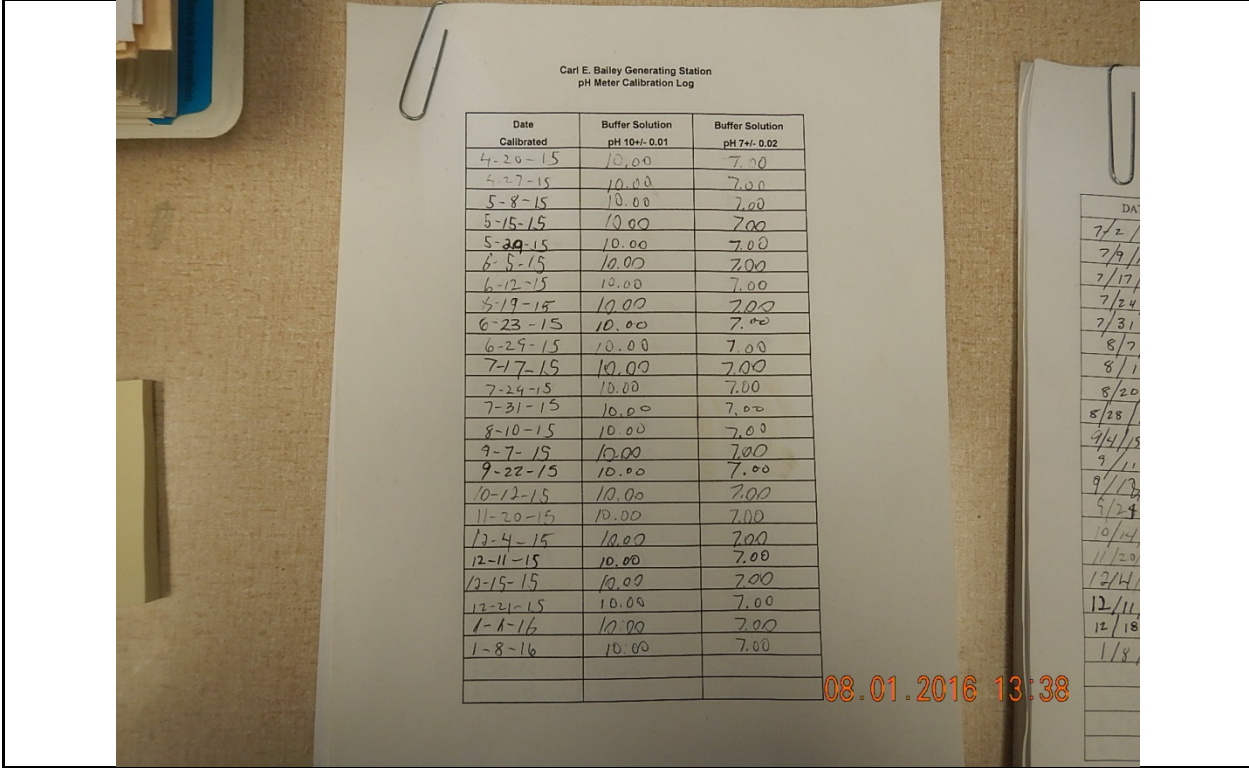 Service Information
Carl E. Bailey Generating Station
pH Meter Calibration Log
Date Calibrated Buffer Solution pH 10+/- 0.01 Buffer Solution pH 7+/- 0.02
4-20-15 10.00 7.00
4-27-15 10.00 7.00
5-8-15 10.00 7.00
5-15-15 10.00 7.00
5-29-15 10.00 7.00
6-5-15 10.00 7.00
6-12-15 10.00 7.00
6-19-15 10.00 7.00
6-23-15 10.00 7.00
6-29-15 10.00 7.00
7-17-15 10.00 7.00
7-24-15 10.00 7.00
7-31-15 10.00 7.00
8-10-15 10.00 7.00
9-7-15 10.00 7.00
9-22-15 10.00 7.00
10-12-15 10.00 7.00
11-20-15 10.00 7.00
12-4-15 10.00 7.00
12-11-15 10.00 7.00
12-15-15 10.00 7.00
12-21-15 10.00 7.00
1-1-16 10.00 7.00
1-8-16 10.00 7.00
DA
7/2/
7/9/
7/17/
7/24
7/31
8/7
8/1
8/20
8/28/
9/4/15
9/11
10/14/
11/20/
12/4/
12/11
12/18
1/8/
08.01.2016 13:38